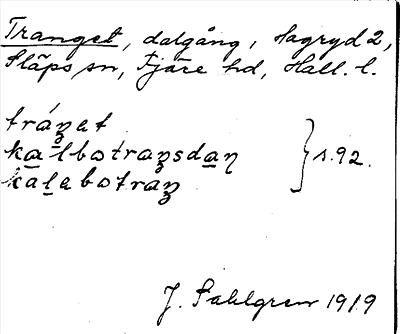 Tranget, dalgång, Hagryd 2,
Släps sn, Fjäre hd, Hall. l.
tráŋet
kalbotraŋsdaŋ } s. 92.
kalabotraŋ
J. Sahlgren 1919